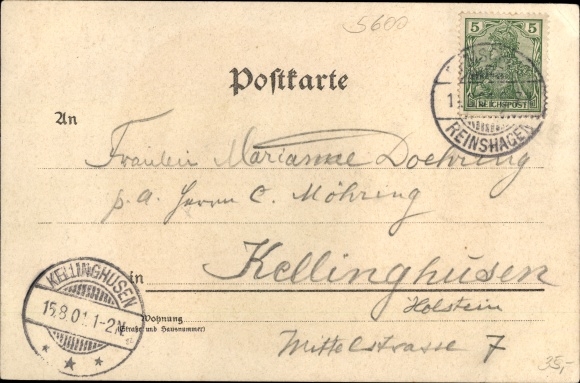 5600
5 5
REICHSPOST
REINSHAGEN
Postkarte
An
Fräulein Marianne Doehring
p. a. Herrn C. Möhring
in Kellinghusen
Holstein
Wohnung
(Straße und Hausnummer)
Mittelstrasse 7
KELLINGHUSEN
15.8.01.1-2N
35,-